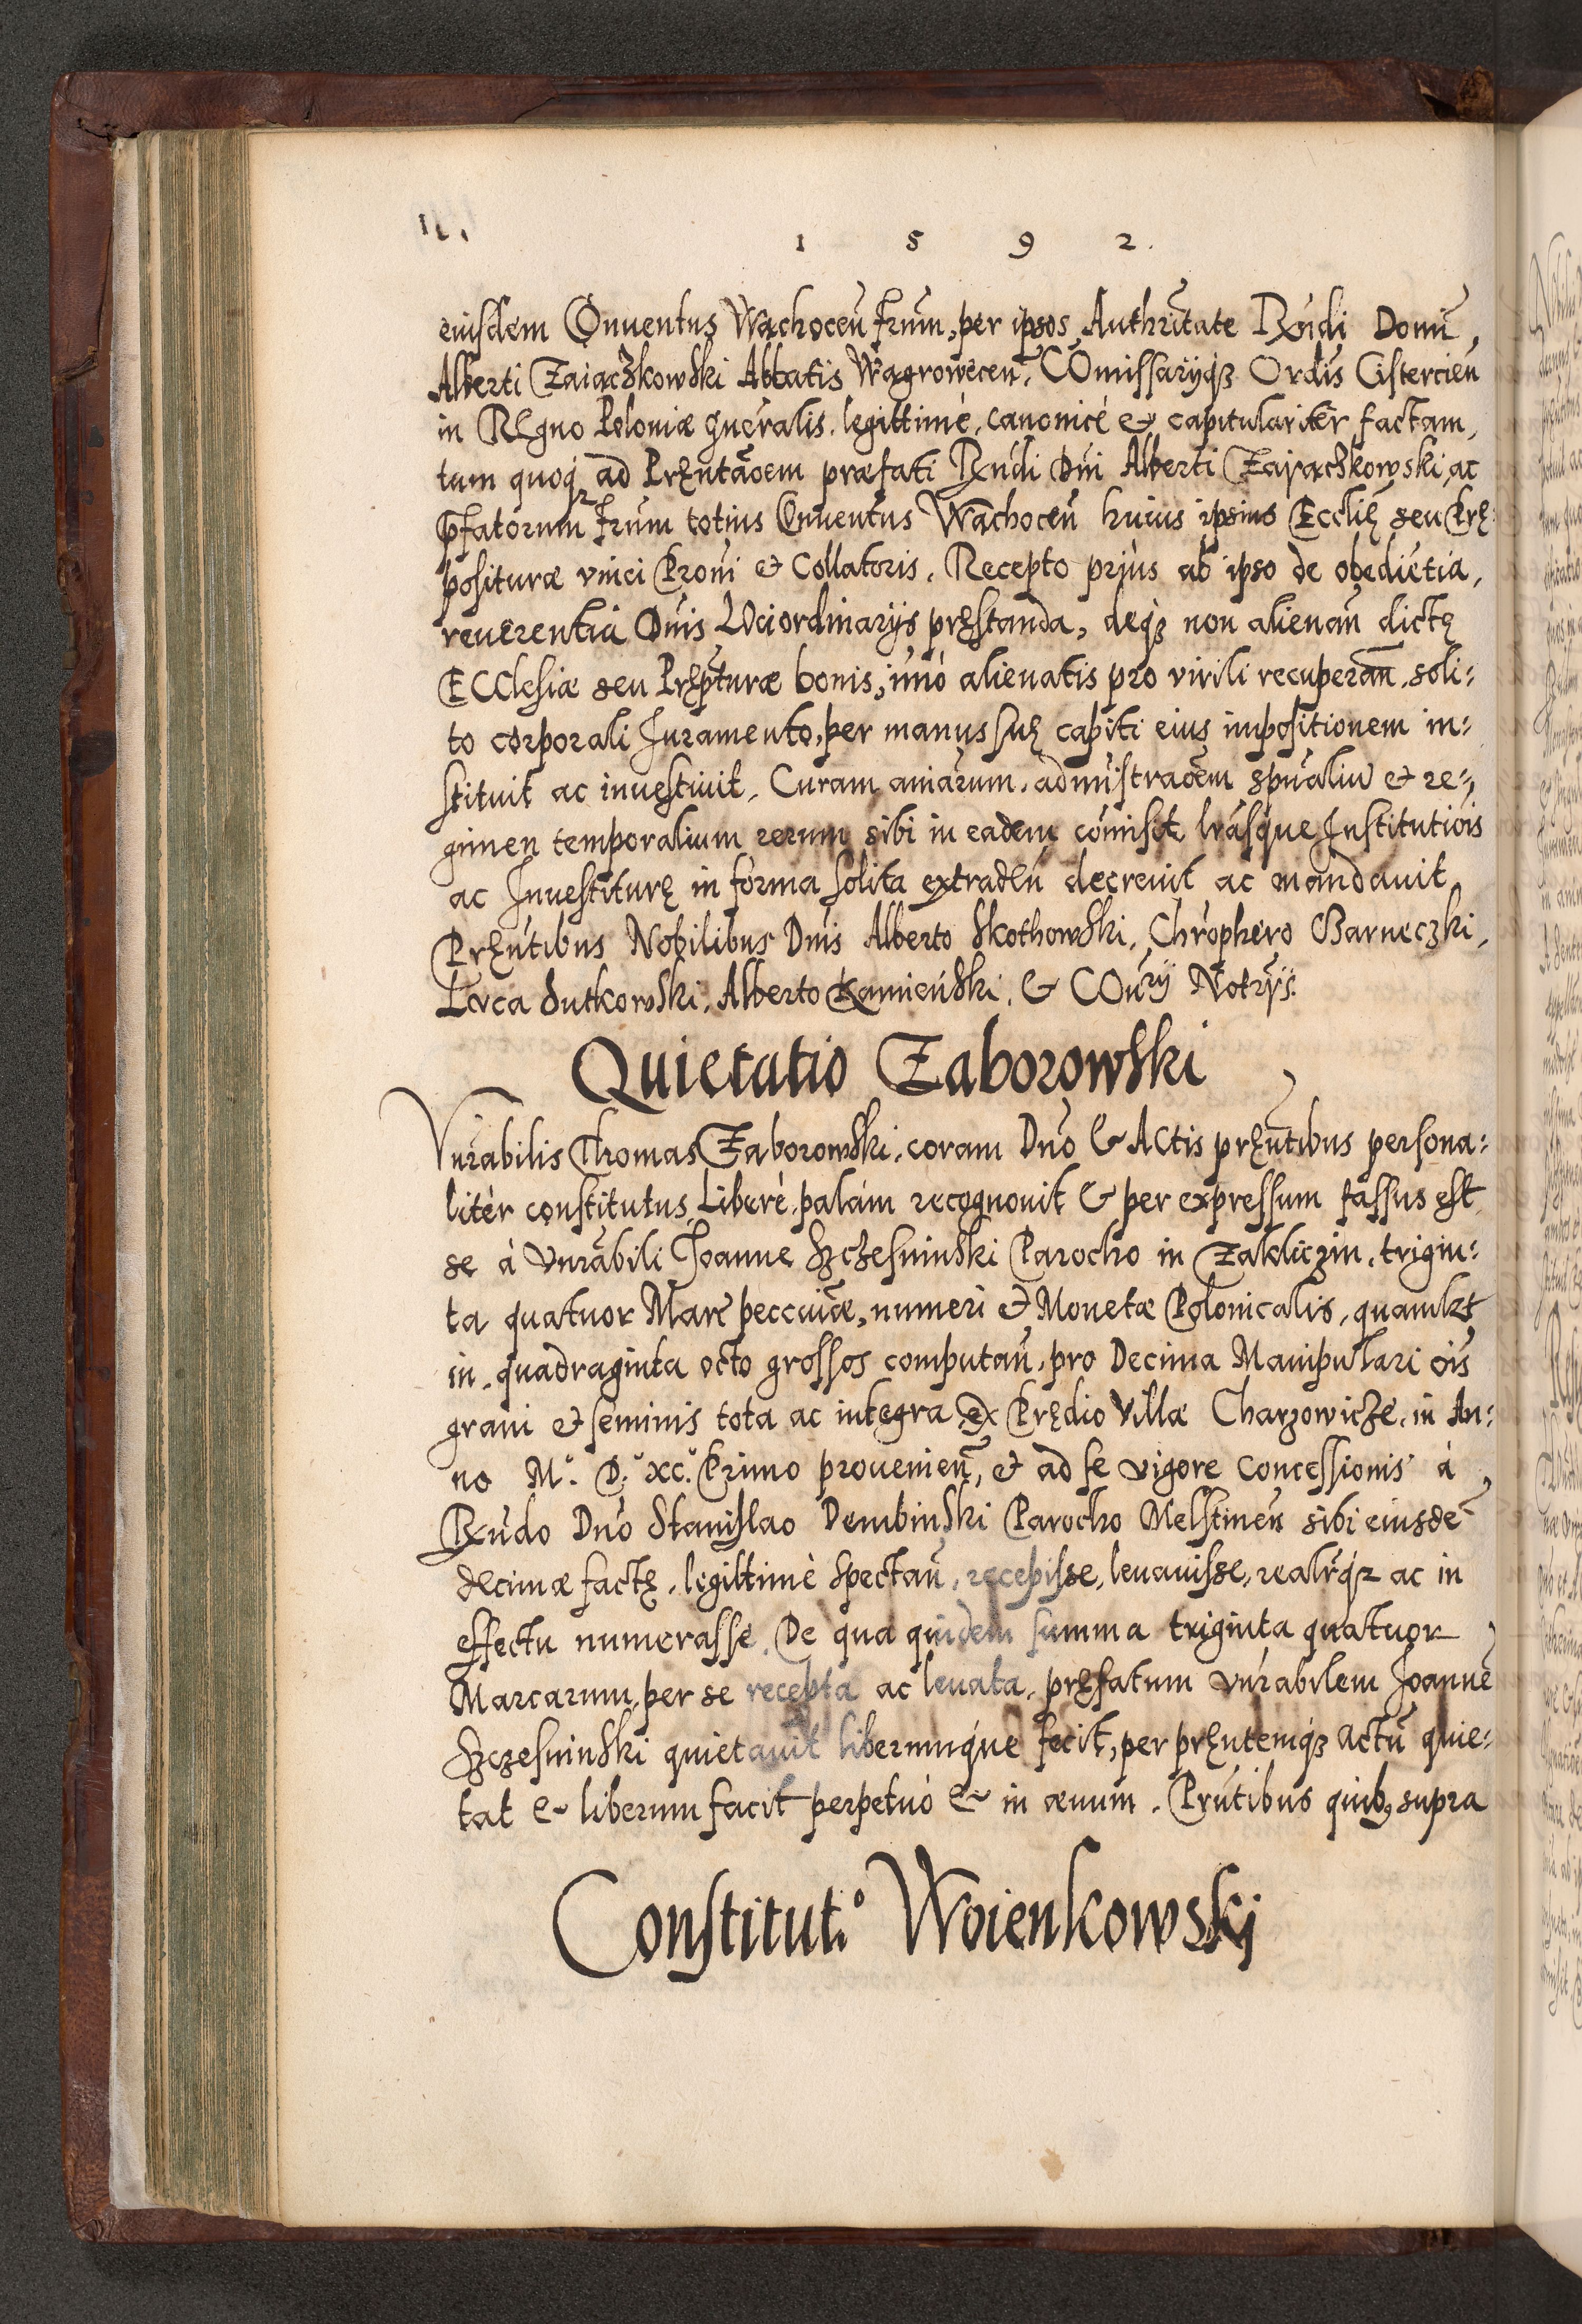 1 5 9 2.
eiusdem Conuentus Wąchoceñ frũm, per ipsos, Authritate Rx̃ndi Domi͂,
Alberti Zaiączkowski Abbatis Wągroweceñ. COmissaryq3 Ordis Cisterciẽn
in Regno Poloniæ gńeralis. legittimè, canonicè & capitularitèr factam,
tum quoq3 ad Pręntãoem præfati Rx̃ndi Dñi Alberti Zaiączkowski, ac
p̃fatorum frũm totius Conuentus Wąchoceñ huius ipsius Ecclię seu Prę-
posituræ vnici Proñi & Collatoris. Recepto priùs ab ipso de obediẽtia,
reuerentia Dñis LOci ordinarijs pręstanda, deq3 non alienañ dictę
ECClesiæ seu Pręp̃turæ bonis, im̃o alienatis pro virili recuperañ. soli:
to corporali Juramento, per manus suę capiti eius impositionem in:
stituit ac inuestiuit, Curam aniarum, admistraoẽm spũaliũ & re:
gimen temporalium rerum sibi in eadem comisit lrãsque Institutiõis
ac Inuestiturę in forma solita extradẽñ decreuit ac mandauit.
Pręntibus Nobilibus Dñis Alberto Skothowski, Chrõphero Barneczki,
Luca Sutkowski, Alberto Kamieński, & COñry Notrys.
Quietatio Zaborowski
Vnrabilis Thomas Zaborowski, coram Dño & ACtis pręntibus persona:
litèr constitutus, Liberè, palàm recognouit & per expressum fassus est
se à Vnrabili Joanne Szczesninski Parocho in Zakliczin, trigin:
ta quatuor Marc̃ peccuniæ, numeri & Monetæ Polonicalis, quamlz̃t
in quadraginta octo grossos computañ, pro Decima Manipulari õis
grani & seminis tota ac integra ex Prędio Villæ Charzowicze, in An:
no M.° D.° XC.° Primo proueniẽñ, et ad se vigore Concessionis à
Rx̃ndo Dño Stanislao Dembinski Parocho Melstineñ sibi eiusdẽ
decimæ factę, legittimè spectañ, recepisse, leuauisse, realr̃q3 ac in
effectu numerasse. De qua quidem summa triginta quatuor
Marcarum, per se recepta ac leuata, pręfatum Vnrabilem Joannẽ
Szczesninski quietauit liberumque fecit, per pręntemq3 actũ quie:
tat & liberum facit perpetuò & in æuum. Prñtibus quib9 supra
Constitut.° Woienkowskj